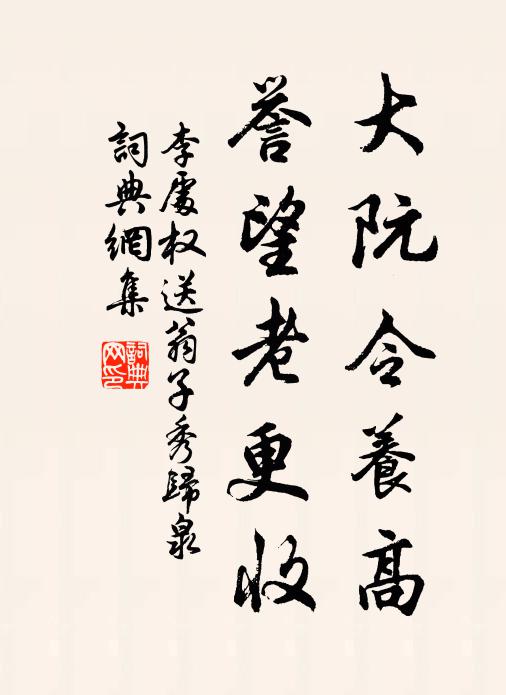 大阮令養高
誉望老更收
李處权送翁子秀歸泉
詞典網集
詞典網印